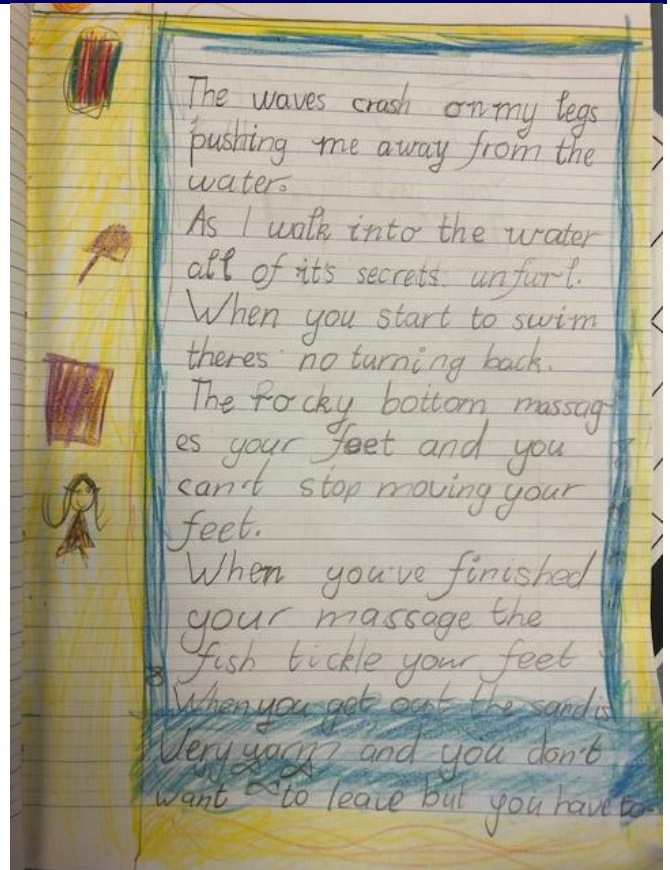 The waves crash on my legs
pushing me away from the
water.
As I walk into the water
all of it's secrets unfurl.
When you start to swim
theres no turning back.
The rocky bottom massag-
es your feet and you
can't stop moving your
feet.
When you've finished
your massage the
fish tickle your feet
When you get out the sand is
Very warm and you don't
want to leave but you have to